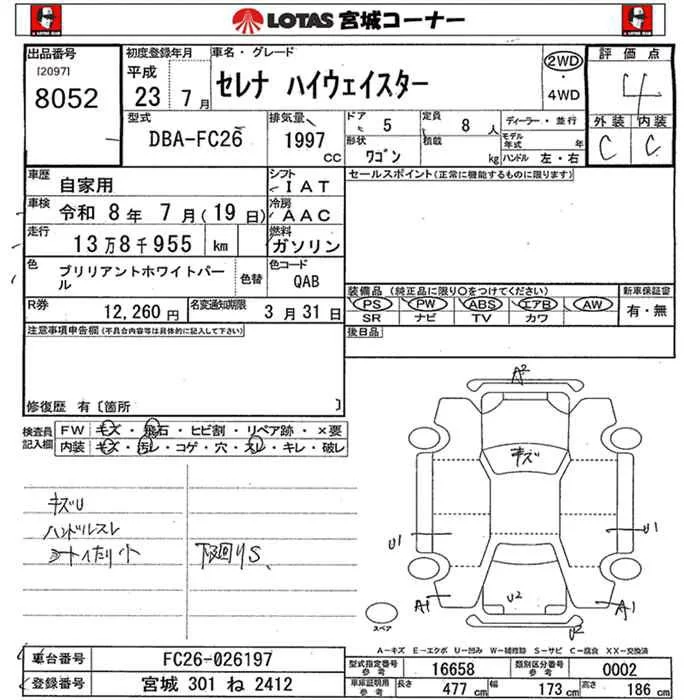 LOTAS 宮城コーナー
出品番号
[2097]
8052
初度登録年月
平成
23 7月
車名・グレード
セレナ ハイウェイスター
2WD
・
4WD
評価点
4
外装 内装
C C
型式
DBA-FC26
排気量
1997
CC
ドア
5
定員
8 人
形状
ワゴン
積載
kg
ディーラー・並行
モデル年式 年
ハンドル 左・右
車歴
自家用
シフト
IAT
車検
令和 8年 7月(19日)
冷房
AAC
走行
13万8千955 km
燃料
ガソリン
色
ブリリアントホワイトパール
色替
色コード
QAB
R券
12,260円
名変通知期限
3月31日
セールスポイント(正常に機能するものに限ります)
装備品 (純正品に限り○をつけてください)
新車保証書
PS PW ABS エアB AW
有・無
SR ナビ TV カワ
後日品
注意事項申告欄(不具合内容等は具体的に記入して下さい)
修復歴 有〔箇所 〕
検査員記入欄
FW キズ・飛石・ヒビ割・リペア跡・×要
内装 キズ・汚レ・コゲ・穴・スレ・キレ・破レ
キズU
ハンドルスレ
シートへたり小
下廻りS
A2
キズ
U1
U1
A1
U2
A1
U2
スペア
A-キズ E-エクボ U-凹み W-補修跡 S-サビ C-腐食 XX-交換済
車台番号
FC26-026197
登録番号
宮城 301 ね 2412
型式指定番号
参考
16658
類別区分番号
参考
0002
車庫証明用
参考
長さ 477 cm
幅 173 cm
高さ 186 cm